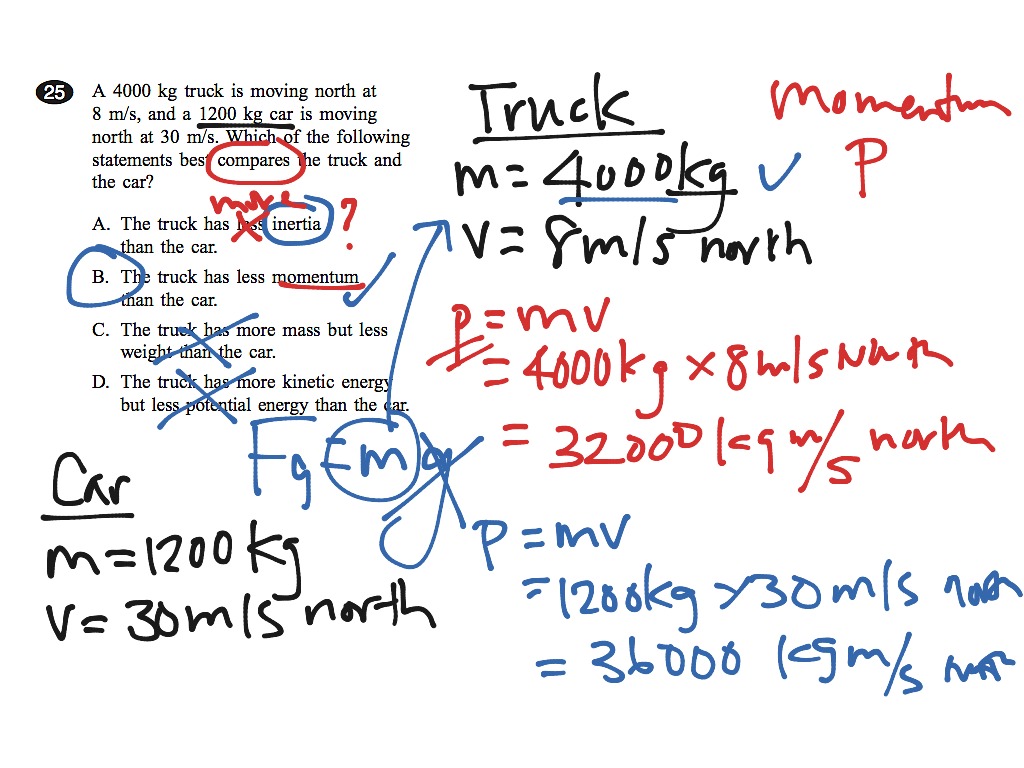 25 A 4000 kg truck is moving north at
8 m/s, and a 1200 kg car is moving
north at 30 m/s. Which of the following
statements best compares the truck and
the car?
more
A. The truck has less inertia ?
than the car.
B. The truck has less momentum
than the car.
C. The truck has more mass but less
weight than the car.
D. The truck has more kinetic energy
but less potential energy than the car.
Fg = mg
Car
m = 1200 kg
v = 30 m/s north
Truck
m = 4000 kg
v = 8 m/s north
momentum
P
P = mv
= 4000 kg × 8 m/s North
= 32000 kg m/s north
P = mv
= 1200 kg × 30 m/s north
= 36000 kg m/s north